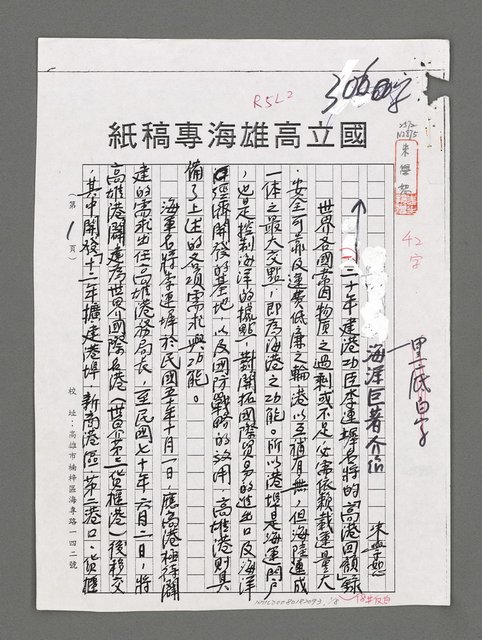 305字
R5L2
國立高雄海專稿紙
朱學恕
42字
黑底白字
海洋巨著介紹 朱學恕
三十年建港功臣李連墀名將的「高港回顧錄」
世界各國常因物質之過剩或不足,必需依賴載運量大
、安全可靠及運費低廉之輪港以互補有無,但海陸連成
一体之最大交點,即為海港之功能。所以港埠是海運門戶
,也是控制海洋的據點,對開拓國際貿易的進出口及海洋
經濟開發的基地,以及國防戰略的效用,高雄港則具
備了上述的各項需求與功能。
海軍名將李連墀於民國五十年十月一日,應高港極待闢
建的需求出任高雄港務局長,至民國七十年六月一日,將
高雄港闢建為世界國際名港(世界第三貨櫃港)後移交
,其中開發十二年擴建港埠、新商港區、第二港口、貨櫃
第1頁
校址:高雄市楠梓區海專路一四二號